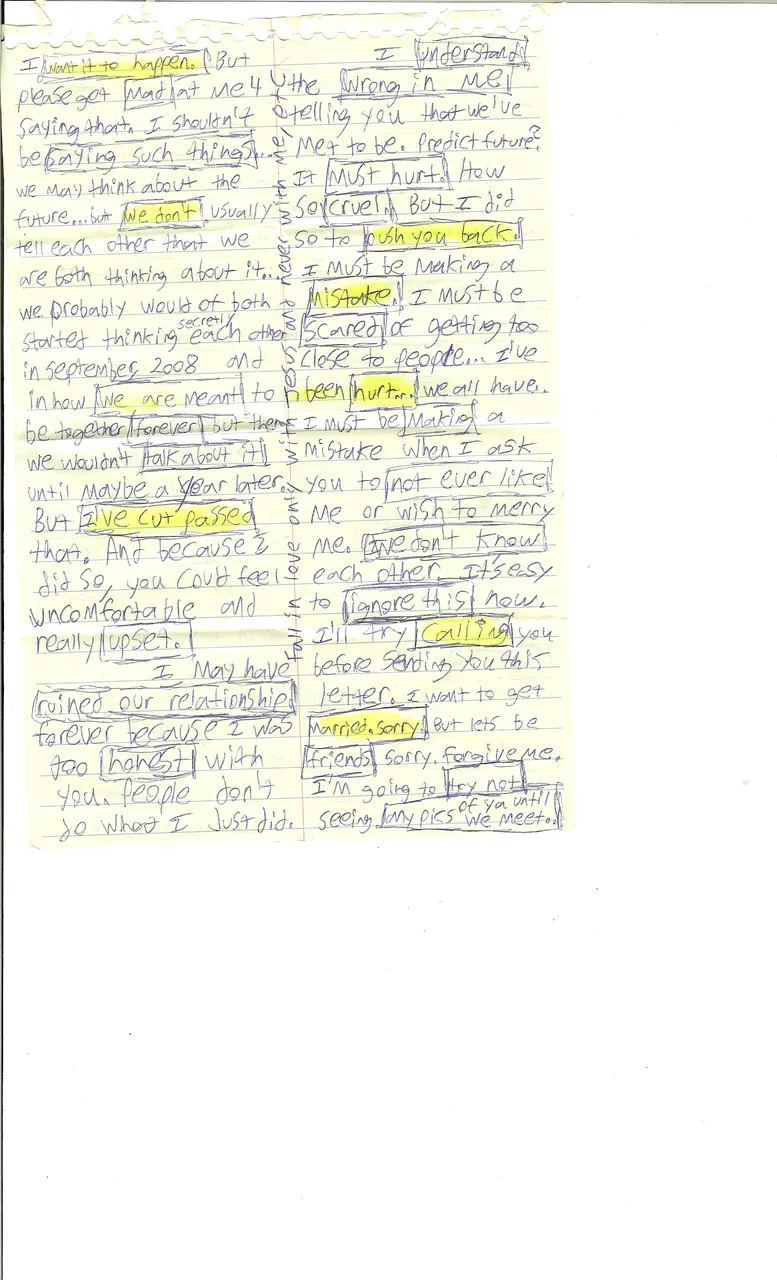 I want it to happen. But
please get mad at me 4
saying that. I shouldn't
be saying such things...
we may think about the
future...but we don't usually
tell each other that we
are both thinking about it...
we probably would of both
started thinking secretly each other
in september, 2008 and
in how we are meant to
be together forever but then
we wouldn't talk about it
until maybe a year later.
But I've cut passed
that. And because I
did so, you could feel
uncomfortable and
really upset.
I may have
ruined our relationship
forever because I was
too honest with
you. People don't
do what I just did.
fall in love only with Jesus and never with me, etc
I understand
the wrong in me
telling you that we've
met to be. Predict future?
It must hurt. How
so cruel. But I did
so to push you back.
I must be making a
mistake. I must be
scared of getting too
close to people... I've
been hurt... we all have..
I must be making a
mistake when I ask
you to not ever like
me or wish to merry
me. We don't know
each other. It's easy
to ignore this now.
I'll try calling you
before sending you this
letter. I want to get
married. sorry. But lets be
friends sorry. forgive me.
I'm going to try not
seeing any pics of ya until we meet..